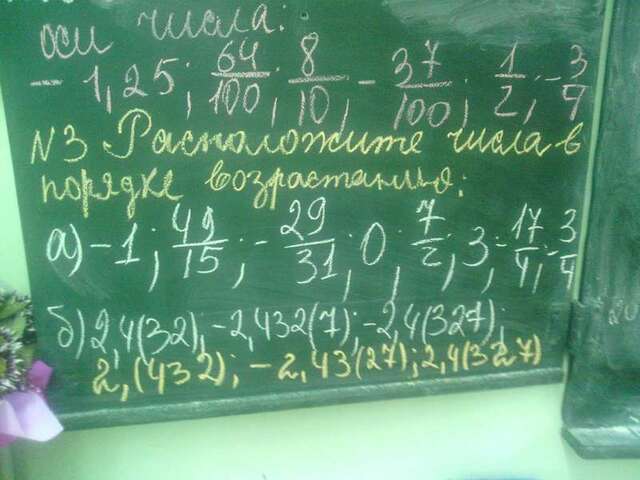 оси числа:
- 1,25; 64/100; 8/10; - 37/100; 1/2; - 3/4
N3 Расположите числа в
порядке возрастания:
а) -1; 49/15; - 29/31; 0; 7/2; 3; - 17/4; - 3/4
б) 2,4(32), -2,432(7); -2,4(327);
2,(432); -2,43(27); 2,4(327)